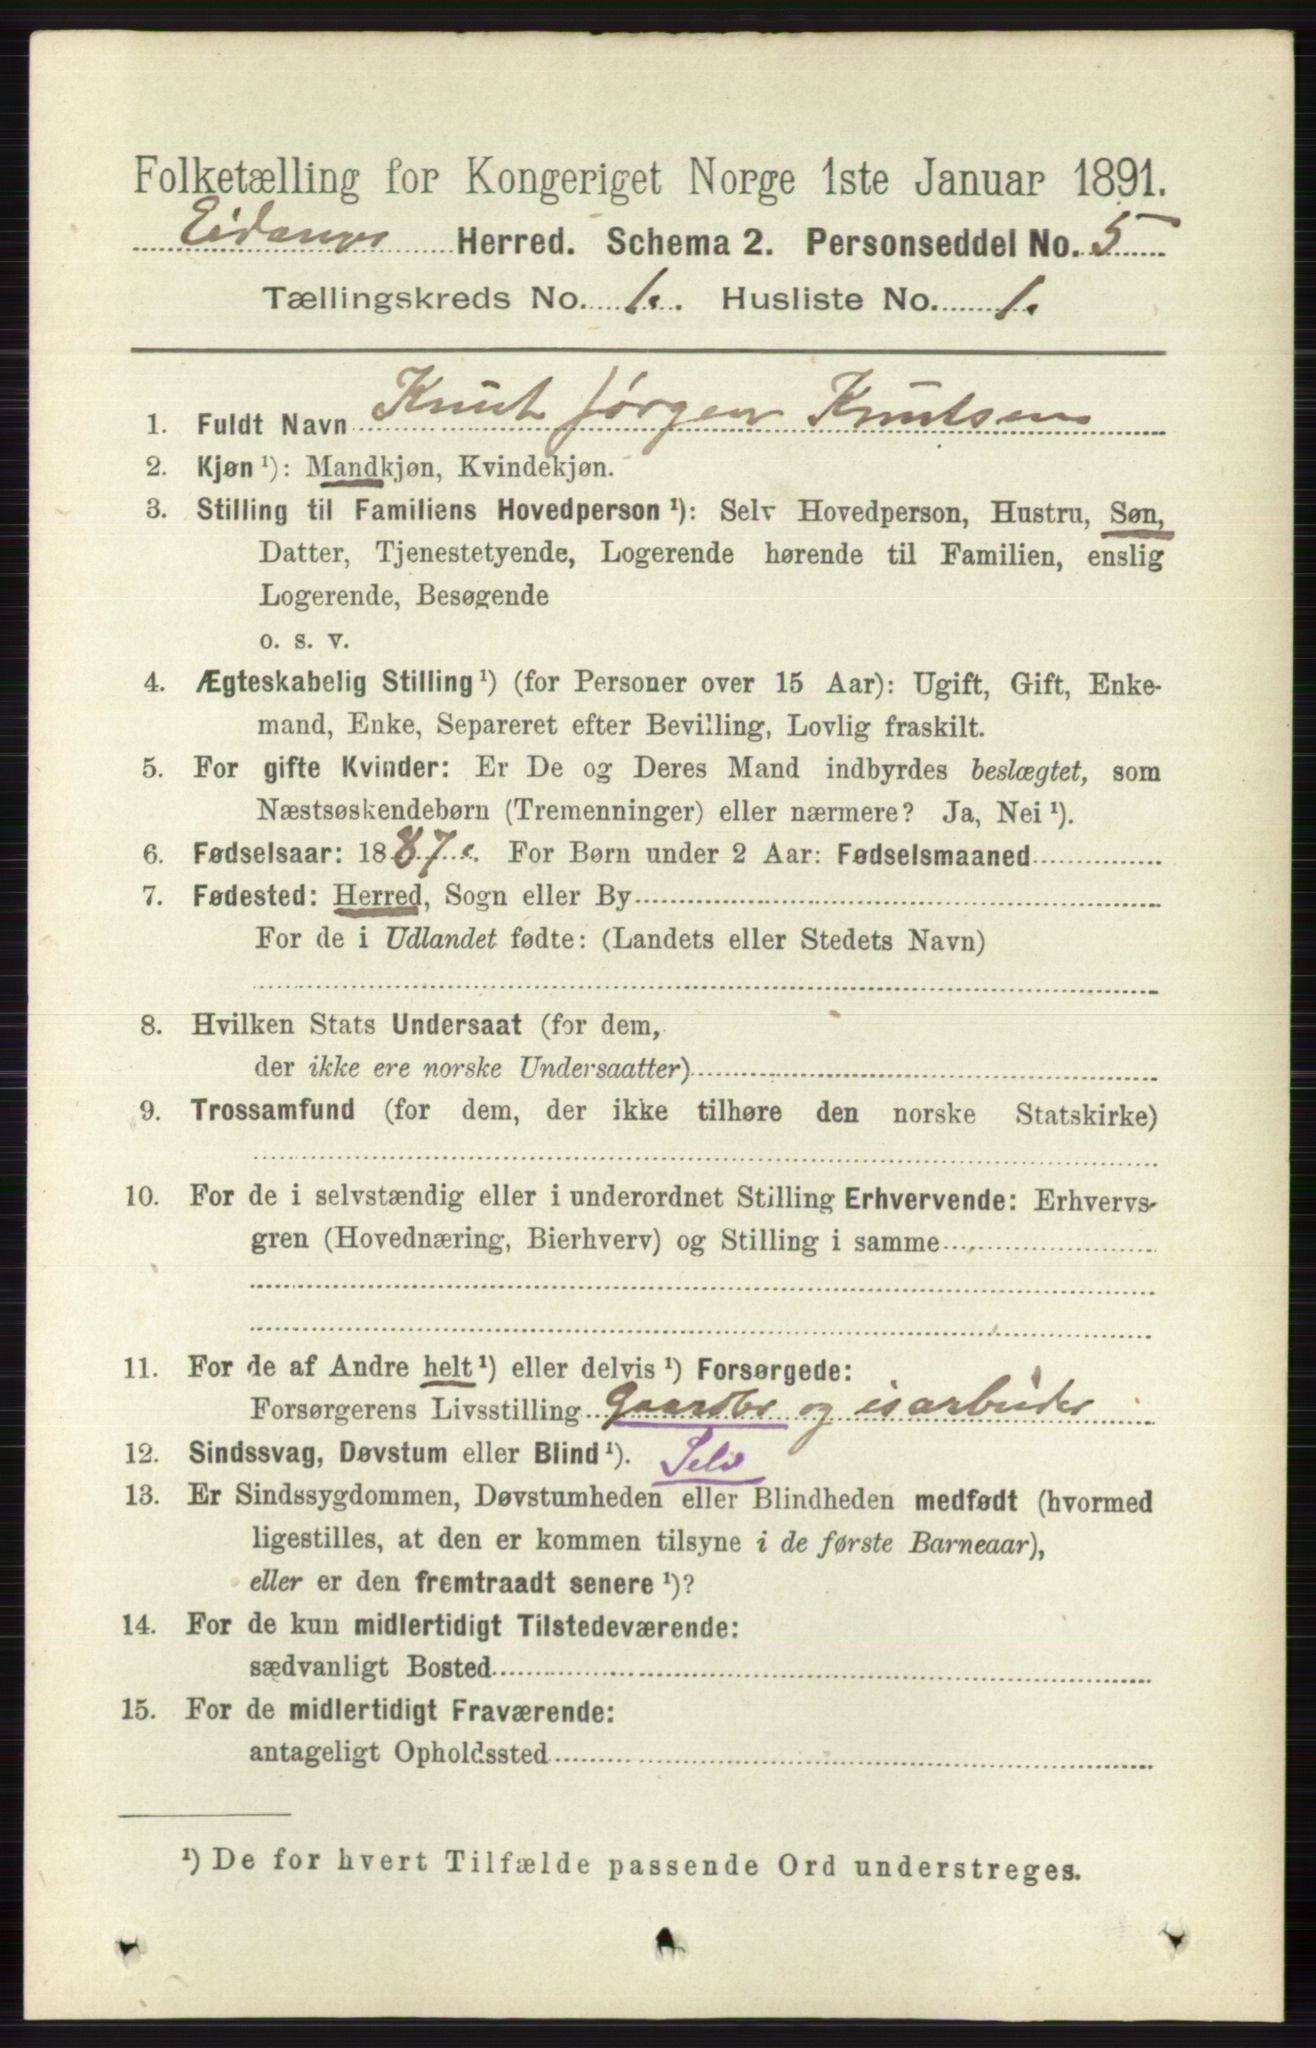 Folketælling for Kongeriget Norge 1ste Januar 1891.
Eidanger Herred. Schema 2. Personseddel No. 5
Tællingskreds No. 1. Husliste No. 1.
1. Fuldt Navn Knut Jørgen Knutsen
2. Kjøn ¹): Mandkjøn, Kvindekjøn.
3. Stilling til Familiens Hovedperson ¹): Selv Hovedperson, Hustru, Søn,
Datter, Tjenestetyende, Logerende hørende til Familien, enslig
Logerende, Besøgende
o. s. v.
4. Ægteskabelig Stilling ¹) (for Personer over 15 Aar): Ugift, Gift, Enke-
mand, Enke, Separeret efter Bevilling, Lovlig fraskilt.
5. For gifte Kvinder: Er De og Deres Mand indbyrdes beslægtet, som
Næstsøskendebørn (Tremenninger) eller nærmere? Ja, Nei ¹).
6. Fødselsaar: 1887. For Børn under 2 Aar: Fødselsmaaned
7. Fødested: Herred, Sogn eller By
For de i Udlandet fødte: (Landets eller Stedets Navn)
8. Hvilken Stats Undersaat (for dem,
der ikke ere norske Undersaatter)
9. Trossamfund (for dem, der ikke tilhøre den norske Statskirke)
10. For de i selvstændig eller i underordnet Stilling Erhvervende: Erhvervs-
gren (Hovednæring, Bierhverv) og Stilling i samme
11. For de af Andre helt ¹) eller delvis ¹) Forsørgede:
Forsørgerens Livsstilling Gaardbr og isarbeider
12. Sindssvag, Døvstum eller Blind ¹). Selv
13. Er Sindssygdommen, Døvstumheden eller Blindheden medfødt (hvormed
ligestilles, at den er kommen tilsyne i de første Barneaar),
eller er den fremtraadt senere ¹)?
14. For de kun midlertidigt Tilstedeværende:
sædvanligt Bosted
15. For de midlertidigt Fraværende:
antageligt Opholdssted
¹) De for hvert Tilfælde passende Ord understreges.